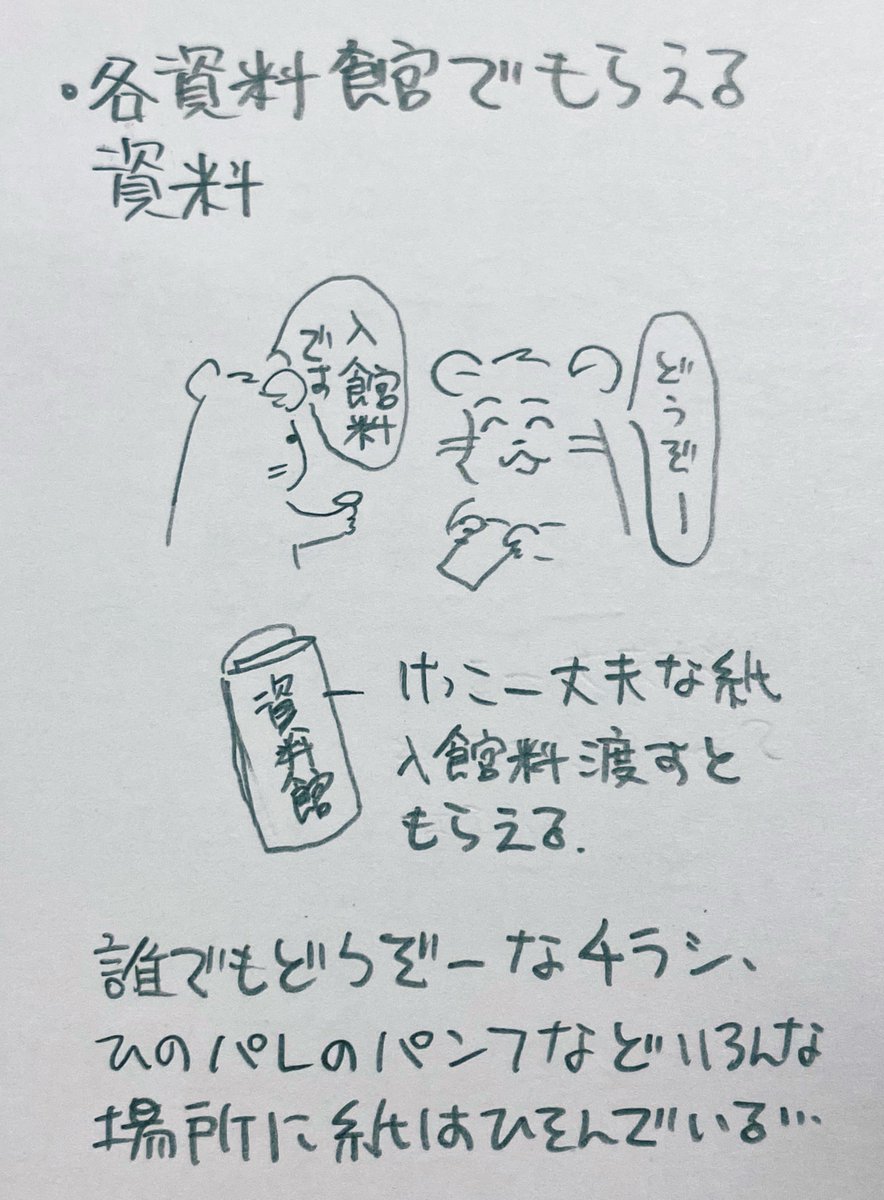 ・各資料館でもらえる
資料
入館料
です
どうぞー
資料館
けっこー丈夫な紙
入館料渡すと
もらえる.
誰でもどうぞーなチラシ、
ひのパレのパンフなどいろんな
場所に紙はひそんでいる…